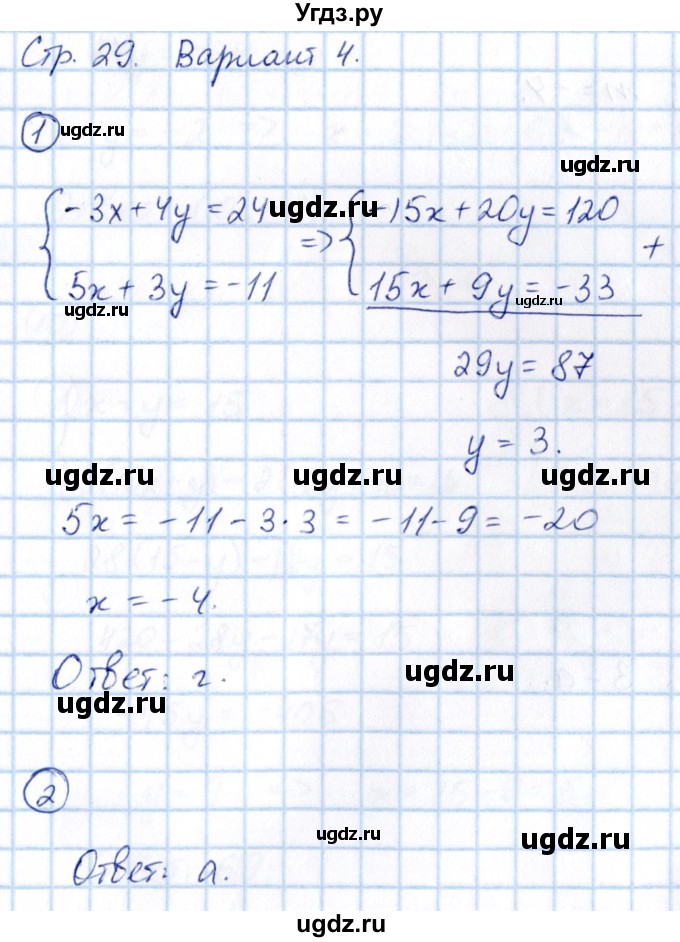 Угдз.ру
Стр. 29. Вариант 4.
1 ugdz.ru
ugdz.ru
{ -3x+4y=24 => { -15x+20y=120
ugdz.ru
5x+3y=-11 15x+9y=-33 +
ugdz.ru ugdz.ru
29y=87
y=3.
ugdz.ru ugdz.ru ugdz.ru
5x = -11-3·3 = -11-9 = -20
x = -4.
Ответ: г.
ugdz.ru ugdz.ru
2
ugdz.ru ugdz.ru
Ответ: а.
ugdz.ru